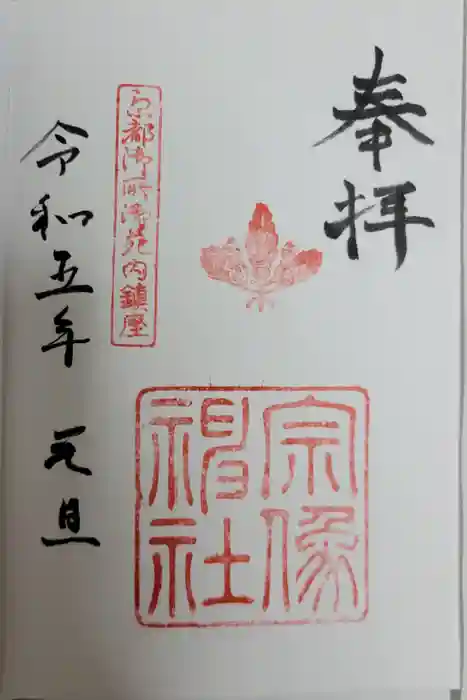 奉拝
京都御所御苑内鎮座
宗像
神社
令和五年 元旦